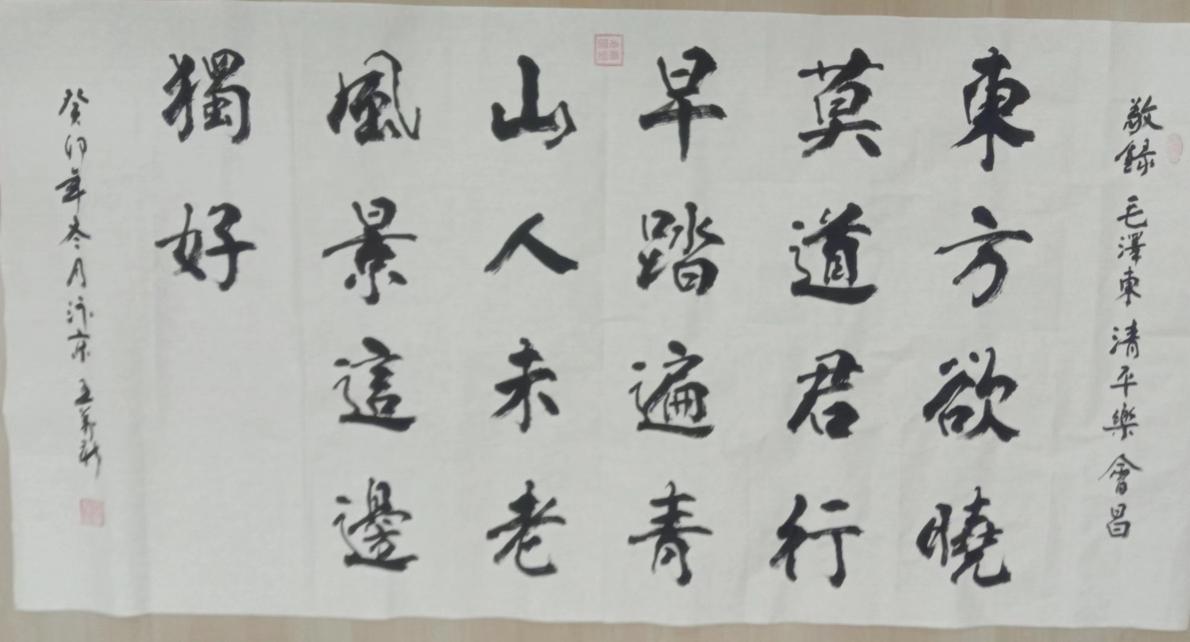 敬錄毛澤東清平樂會昌
東方欲曉
莫道君行
早踏遍青
山人未老
風景這邊
獨好
癸卯年冬月